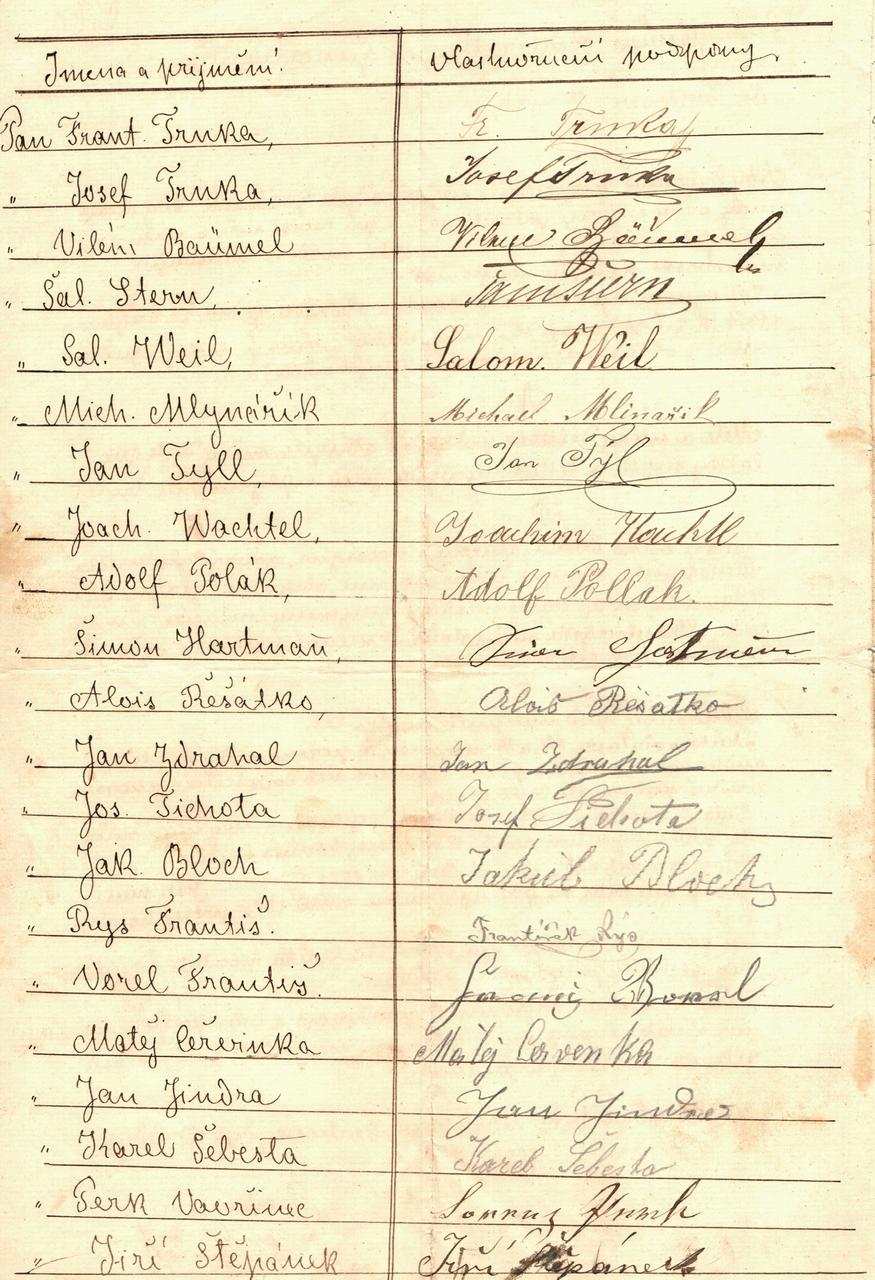 Jmena a přijmění. vlastnoruční podpisy.
Pan Frant. Trnka, Fr. Trnka
" Josef Trnka, Josef Trnka
" Vilém Baümel Vilém Bäumel
" Šal. Stern,
" Sal. Weil, Salom. Weil
" Mich. Mlynářík Michael Mlinařik
" Jan Tyll, Jan Tyl
" Joach. Wachtel, Joachim Wachtl
" Adolf Polák, Adolf Pollak.
" Šimon Hartmań,
" Alois Řěšátko, Alois Řešatko
" Jan Zdrahal Jan Zdrahal
" Jos. Tichota Josef Tichota
" Jak. Bloch Jakub Bloch
" Rys Frantiś. František Rys
" Vorel Frantiś.
" Matěj Ceřvinka Matěj Cervenka
" Jan Jindra Jan Jindra
" Karel Šebesta Karel Šebesta
" Perk Vavřinec Lorenz
" Jiří Štěpánek Jiří Štěpánek